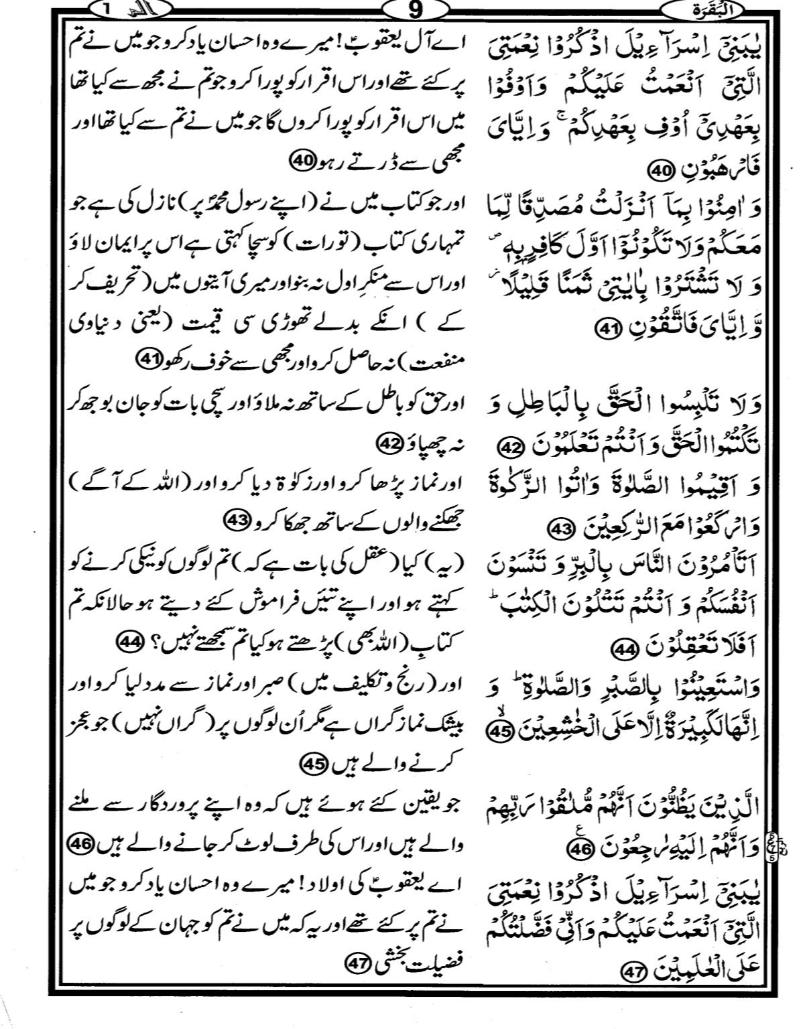 اَلْبَقَرَة
9
الٓمّٓ ۱
يٰبَنِيْۤ اِسْرَآءِيْلَ اذْكُرُوْا نِعْمَتِيَ
الَّتِيْۤ اَنْعَمْتُ عَلَيْكُمْ وَاَوْفُوْا
بِعَهْدِيْۤ اُوْفِ بِعَهْدِكُمْ ۚ وَاِيَّايَ
فَارْهَبُوْنِ 40
وَ اٰمِنُوْا بِمَاۤ اَنْزَلْتُ مُصَدِّقًا لِّمَا
مَعَكُمْ وَلَا تَكُوْنُوْۤا اَوَّلَ كَافِرٍۢ بِهٖ ۪
وَ لَا تَشْتَرُوْا بِاٰيٰتِيْ ثَمَنًا قَلِيْلًا ۫
وَّ اِيَّايَ فَاتَّقُوْنِ 41
وَلَا تَلْبِسُوا الْحَقَّ بِالْبَاطِلِ وَ
تَكْتُمُوا الْحَقَّ وَ اَنْتُمْ تَعْلَمُوْنَ 42
وَ اَقِيْمُوا الصَّلٰوةَ وَاٰتُوا الزَّكٰوةَ
وَارْكَعُوْا مَعَ الرّٰكِعِيْنَ 43
اَتَاْمُرُوْنَ النَّاسَ بِالْبِرِّ وَ تَنْسَوْنَ
اَنْفُسَكُمْ وَ اَنْتُمْ تَتْلُوْنَ الْكِتٰبَ ؕ
اَفَلَا تَعْقِلُوْنَ 44
وَاسْتَعِيْنُوْا بِالصَّبْرِ وَالصَّلٰوةِ ؕ وَ
اِنَّهَا لَكَبِيْرَةٌ اِلَّا عَلَى الْخٰشِعِيْنَ ۙ 45
الَّذِيْنَ يَظُنُّوْنَ اَنَّهُمْ مُّلٰقُوْا رَبِّهِمْ
وَاَنَّهُمْ اِلَيْهِ رٰجِعُوْنَ ع 46
يٰبَنِيْۤ اِسْرَآءِيْلَ اذْكُرُوْا نِعْمَتِيَ
الَّتِيْۤ اَنْعَمْتُ عَلَيْكُمْ وَاَنِّيْ فَضَّلْتُكُمْ
عَلَى الْعٰلَمِيْنَ 47
اے آل یعقوبؑ! میرے وہ احسان یاد کرو جو میں نے تم
پر کئے تھے اور اس اقرار کو پورا کرو جو تم نے مجھ سے کیا تھا
میں اس اقرار کو پورا کروں گا جو میں نے تم سے کیا تھا اور
مجھی سے ڈرتے رہو 40
اور جو کتاب میں نے (اپنے رسول محمدؐ پر) نازل کی ہے جو
تمہاری کتاب (تورات) کو سچا کہتی ہے اس پر ایمان لاؤ
اور اس سے منکرِ اول نہ بنو اور میری آیتوں میں (تحریف کر
کے) انکے بدلے تھوڑی سی قیمت (یعنی دنیاوی
منفعت) نہ حاصل کرو اور مجھی سے خوف رکھو 41
اور حق کو باطل کے ساتھ نہ ملاؤ اور سچی بات کو جان بوجھ کر
نہ چھپاؤ 42
اور نماز پڑھا کرو اور زکوٰۃ دیا کرو اور (اللہ کے آگے)
جھکنے والوں کے ساتھ جھکا کرو 43
(یہ) کیا (عقل کی بات ہے کہ) تم لوگوں کو نیکی کرنے کو
کہتے ہو اور اپنے تئیں فراموش کئے دیتے ہو حالانکہ تم
کتابِ (اللہ بھی) پڑھتے ہو کیا تم سمجھتے نہیں؟ 44
اور (رنج و تکلیف میں) صبر اور نماز سے مدد لیا کرو اور
بیشک نماز گراں ہے مگر اُن لوگوں پر (گراں نہیں) جو عجز
کرنے والے ہیں 45
جو یقین کئے ہوئے ہیں کہ وہ اپنے پروردگار سے ملنے
والے ہیں اور اس کی طرف لوٹ کر جانے والے ہیں 46
اے یعقوبؑ کی اولاد! میرے وہ احسان یاد کرو جو میں
نے تم پر کئے تھے اور یہ کہ میں نے تم کو جہان کے لوگوں پر
فضیلت بخشی 47